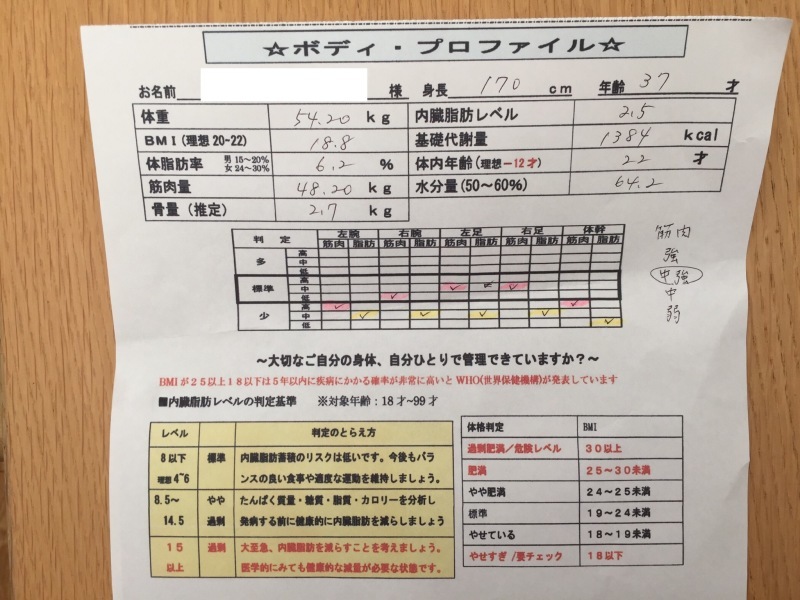 ☆ボディ・プロファイル☆
お名前 様 身長 170 cm 年齢 37 才
体重 54.20 kg 内臓脂肪レベル 2.5
BMI(理想20-22) 18.8 基礎代謝量 1384 kcal
体脂肪率 男 15~20% 女 24~30% 6.2 % 体内年齢(理想−12才) 22 才
筋肉量 48.20 kg 水分量(50~60%) 64.2
骨量(推定) 2.7 kg
判定 左腕 右腕 左足 右足 体幹
筋肉 脂肪 筋肉 脂肪 筋肉 脂肪 筋肉 脂肪 筋肉 脂肪
多 高
中
低
標準 高
中
低
少 高
中
低
筋肉
強
中強
中
弱
~大切なご自分の身体、自分ひとりで管理できていますか?~
BMIが25以上18以下は5年以内に疾病にかかる確率が非常に高いとWHO(世界保健機構)が発表しています
■内臓脂肪レベルの判定基準 ※対象年齢:18才~99才
レベル 判定のとらえ方
8以下 標準 内臓脂肪蓄積のリスクは低いです。今後もバラ
理想4~6 ンスの良い食事や適度な運動を維持しましょう。
8.5~ やや たんぱく質量・糖質・脂質・カロリーを分析し
14.5 過剰 発病する前に健康的に内臓脂肪を減らしましょう
15 過剰 大至急、内臓脂肪を減らすことを考えましょう。
以上 医学的にみても健康的な減量が必要な状態です。
体格判定 BMI
過剰肥満/危険レベル 30以上
肥満 25~30未満
やや肥満 24~25未満
標準 19~24未満
やせている 18~19未満
やせすぎ/要チェック 18以下